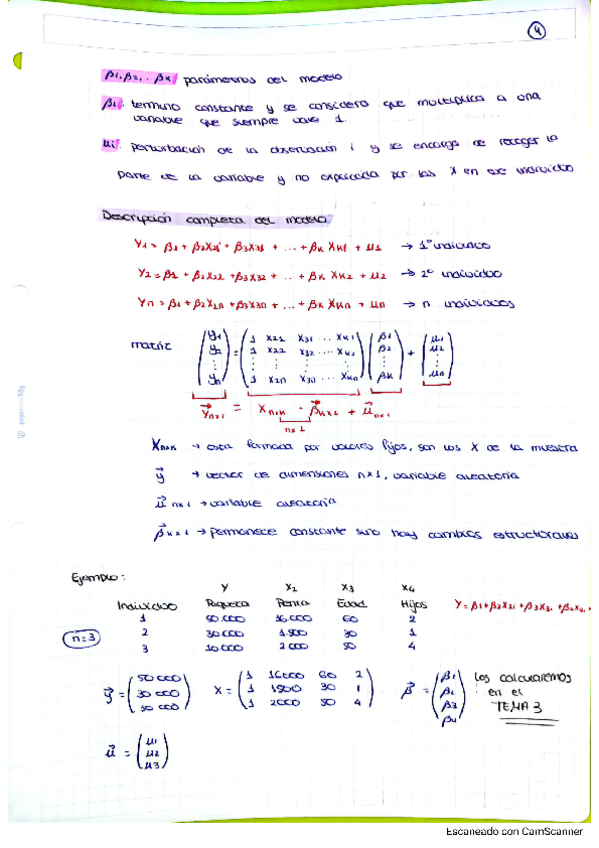 4
β1, β2, .. βk parámetros del modelo
β1: termino constante y se considera que multiplica a una
variable que siempre vale 1.
ui: perturbación de la observación i y se encarga de recoger la
parte de la variable y no explicada por las X en ese individuo
Descripción completa del modelo:
Y1 = β1 + β2X21 + β3X31 + ... + βk Xk1 + u1 → 1º individuo
Y2 = β1 + β2X22 + β3X32 + ... + βk Xk2 + u2 → 2º individuo
Yn = β1 + β2X2n + β3X3n + ... + βk Xkn + un → n individuos
matriz (y1 y2 ⋮ yn) = (1 X21 X31 ... Xk1 / 1 X22 X32 ... Xk2 / ⋮ ⋮ ⋮ ⋮ / 1 X2n X3n ... Xkn) (β1 β2 ⋮ βk) + (u1 u2 ⋮ un)
Ynx1 = Xnxk · βkx1 + unx1
nx1
Xnxk → esta formada por valores fijos, son las X de la muestra
y → vector de dimensiones nx1, variable aleatoria
u nx1 → variable aleatoria
βkx1 → permanece constante sino hay cambios estructurales
Ejemplo:
Y X2 X3 X4
Individuo Riqueza Renta Edad Hijos Y = β1 + β2X2i + β3X3i + β4X4i
1 50.000 16.000 60 2
n=3 2 30.000 1.800 30 1
3 10.000 2000 50 4
y = (50 000 / 30 000 / 10 000) X = (1 16000 60 2 / 1 1800 30 1 / 1 2000 50 4) β = (β1 / β2 / β3 / β4) Los calcularemos
en el
TEMA 3
u = (u1 / u2 / u3)
Escaneado con CamScanner